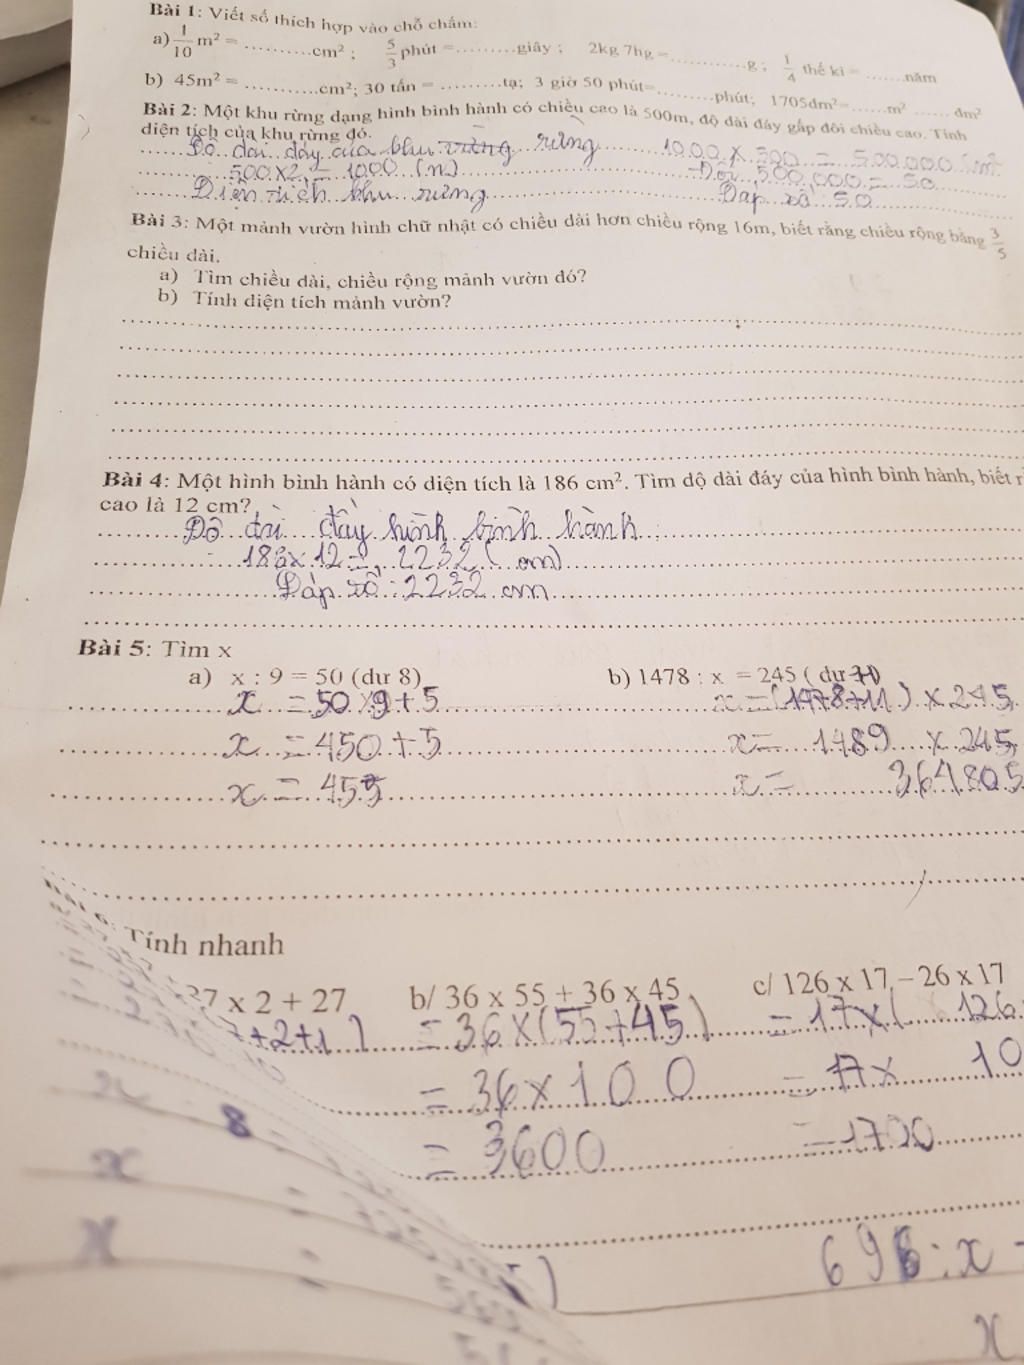 Bài 1: Viết số thích hợp vào chỗ chấm:
a) 1/10 m² = ...........cm² ; 5/3 phút =..........giây ; 2kg 7hg =............g ; 1/4 thế kỉ = .......năm
b) 45m² = ............cm²; 30 tấn = ..........tạ; 3 giờ 50 phút=..........phút; 1705dm²=......m² ...... dm²
Bài 2: Một khu rừng dạng hình bình hành có chiều cao là 500m, độ dài đáy gấp đôi chiều cao. Tính
diện tích của khu rừng đó.
Độ dài đáy của khu rừng rừng 1000 x 500 = 500 000 (m²
500 x 2 = 1000 (m) Đổi 500 000 = 50
Diện tích khu rừng Đáp số : 50
Bài 3: Một mảnh vườn hình chữ nhật có chiều dài hơn chiều rộng 16m, biết rằng chiều rộng bằng 3/5
chiều dài.
a) Tìm chiều dài, chiều rộng mảnh vườn đó?
b) Tính diện tích mảnh vườn?
Bài 4: Một hình bình hành có diện tích là 186 cm². Tìm dộ dài đáy của hình bình hành, biết r
cao là 12 cm?
Độ dài đấy hình bình hành
186 x 12 = 2232 ( cm)
Đáp số : 2232 cm
Bài 5: Tìm x
a) x : 9 = 50 (dư 8) b) 1478 : x = 245 ( dư )
x = 50 x 9 + 5 x = (1478+11) x 245
x = 450 + 5 x = 1489 x 245
x = 455 x = 364805
6: Tính nhanh
27 x 2 + 27 b/ 36 x 55 + 36 x 45 c/ 126 x 17 – 26 x 17
+2+1) = 36 x (55+45) = 17 x ( 126
= 36 x 100 = 17 x 10
= 3600 = 1700
x 8
x =
x = 696 : x
x